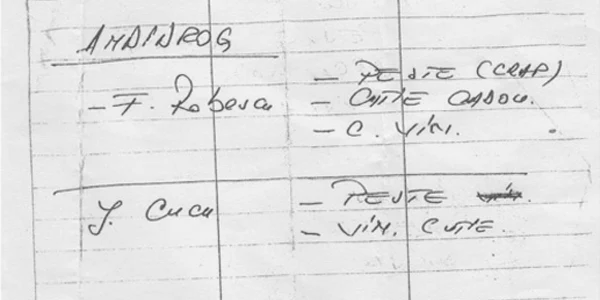 - F. Robescu - PEȘTE (CRAP)
- CUTIE CADOU.
- C. VIN.
J. Cucu - PEȘTE
- VIN. CUTIE.